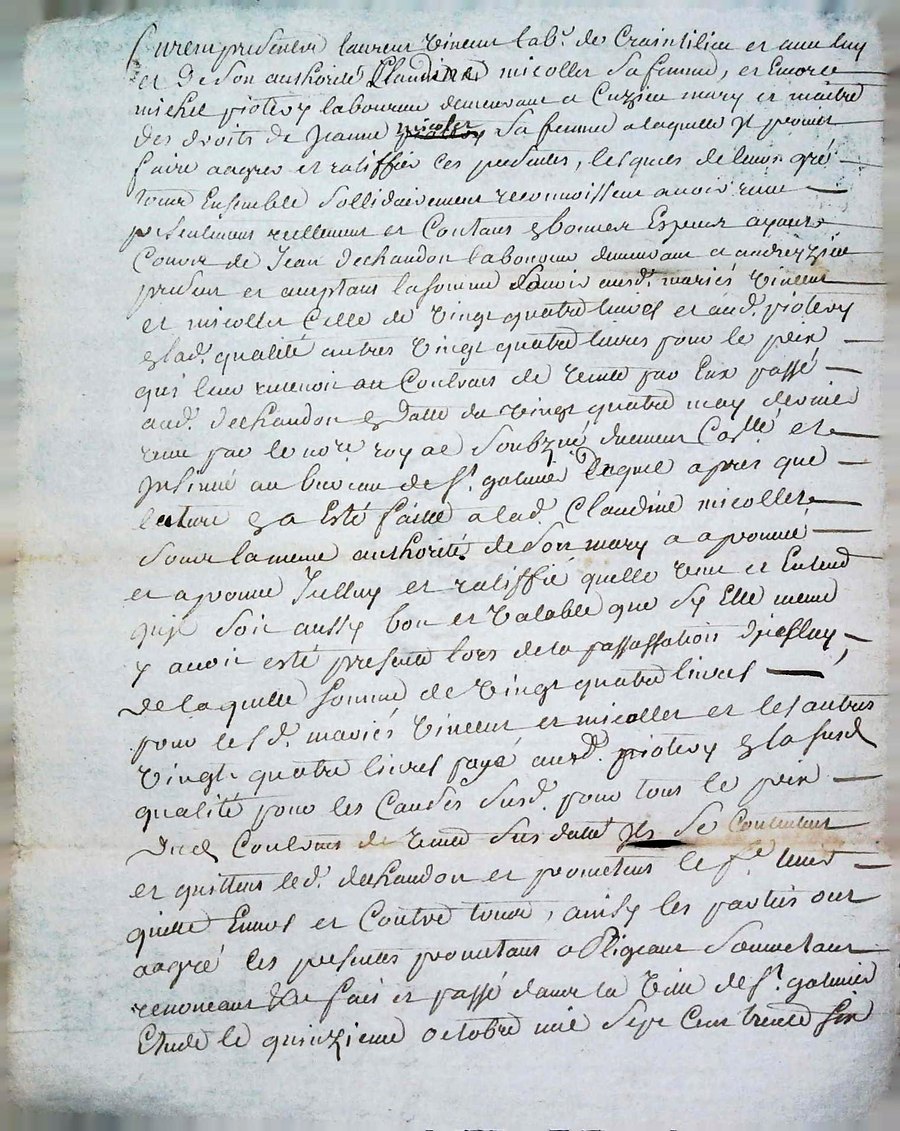 furent presents laurent Vincent lab.r de Craintilieu et avec luy
et De son authorité Claudine micollet sa femme, et Encore
michel piotery laboureur demeurant a Cuzieu mary et maitre
des droits de Jeanne micolet sa femme a laquelle jl promet
faire aagreer et ratiffier ces presentes, lesquels de leurs gré
tous Ensemble sollidairement reconnoissent avoir receu
presentement reellement et Contant en bonnes Especes ayant
Cours de Jean dechandon laboureur demeurant a andrezieu
present et aceptant la somme scavoir ausd. mariés Vincent
et micollet Celle de Vingt quatre livres et aud. piotery
en lad. qualité autres Vingt quatre livres pour le prix
qui leur revenoit au Contract de Vente par Eux passé
aud. dechandon en datte du Vingt quatre may dernier
receu par le no.re royal soubzné deuement Co.llé et
jnsinué au bureau de s.t galmier duquel apres que
lecture en a Esté faitte a lad. Claudine micollet
sous la meme authorité de son mary a aprouvé
et aprouve Jcelluy et ratiffié quelle veut et Entend
qujl soit aussy bon et Valable que sy Elle meme
y avoit esté presente lors de la passassation djcelluy,
de laquelle somme de Vingt quatre livres
pour lesd. mariés Vincent et micollet et les autres
Vingt quatre livres payé aud. piotery en la susd
qualité pour les Causes susd. pour tous le prix
dud Contract de Vente sus datté jls se Contentent
et quittent led. dechandon et promettent le f.e tenir
quitte Envers et Contre tous, ainsy les parties ont
aagré ces presentes promettant obligeant soumettant
renonceant &c fait et passé dans la Ville de s.t galmier
Etude le quinzieme octobre mil sept Cent trente six